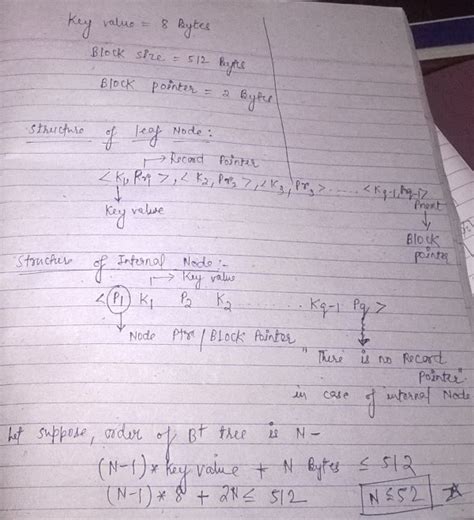 Key value = 8 Bytes
Block size = 512 Bytes
Block pointer = 2 Bytes
Structure of leaf Node :
→ Record Pointer
< K1, Pr1 >, < K2, Pr2 >, < K3, Pr3 > ..... < Kq-1, Prq-1 >
Pnext
Key value
Block pointer
Structure of Internal Node :-
→ Key value
< P1 K1 P2 K2 ........ Kq-1 Pq >
Node Ptr / Block Pointer
"There is no Record
Pointer"
in case of internal Node
Let suppose, order of B+ tree is N -
(N-1) * Key value + N Bytes ≤ 512
(N-1) * 8 + 2N ≤ 512
N ≤ 52